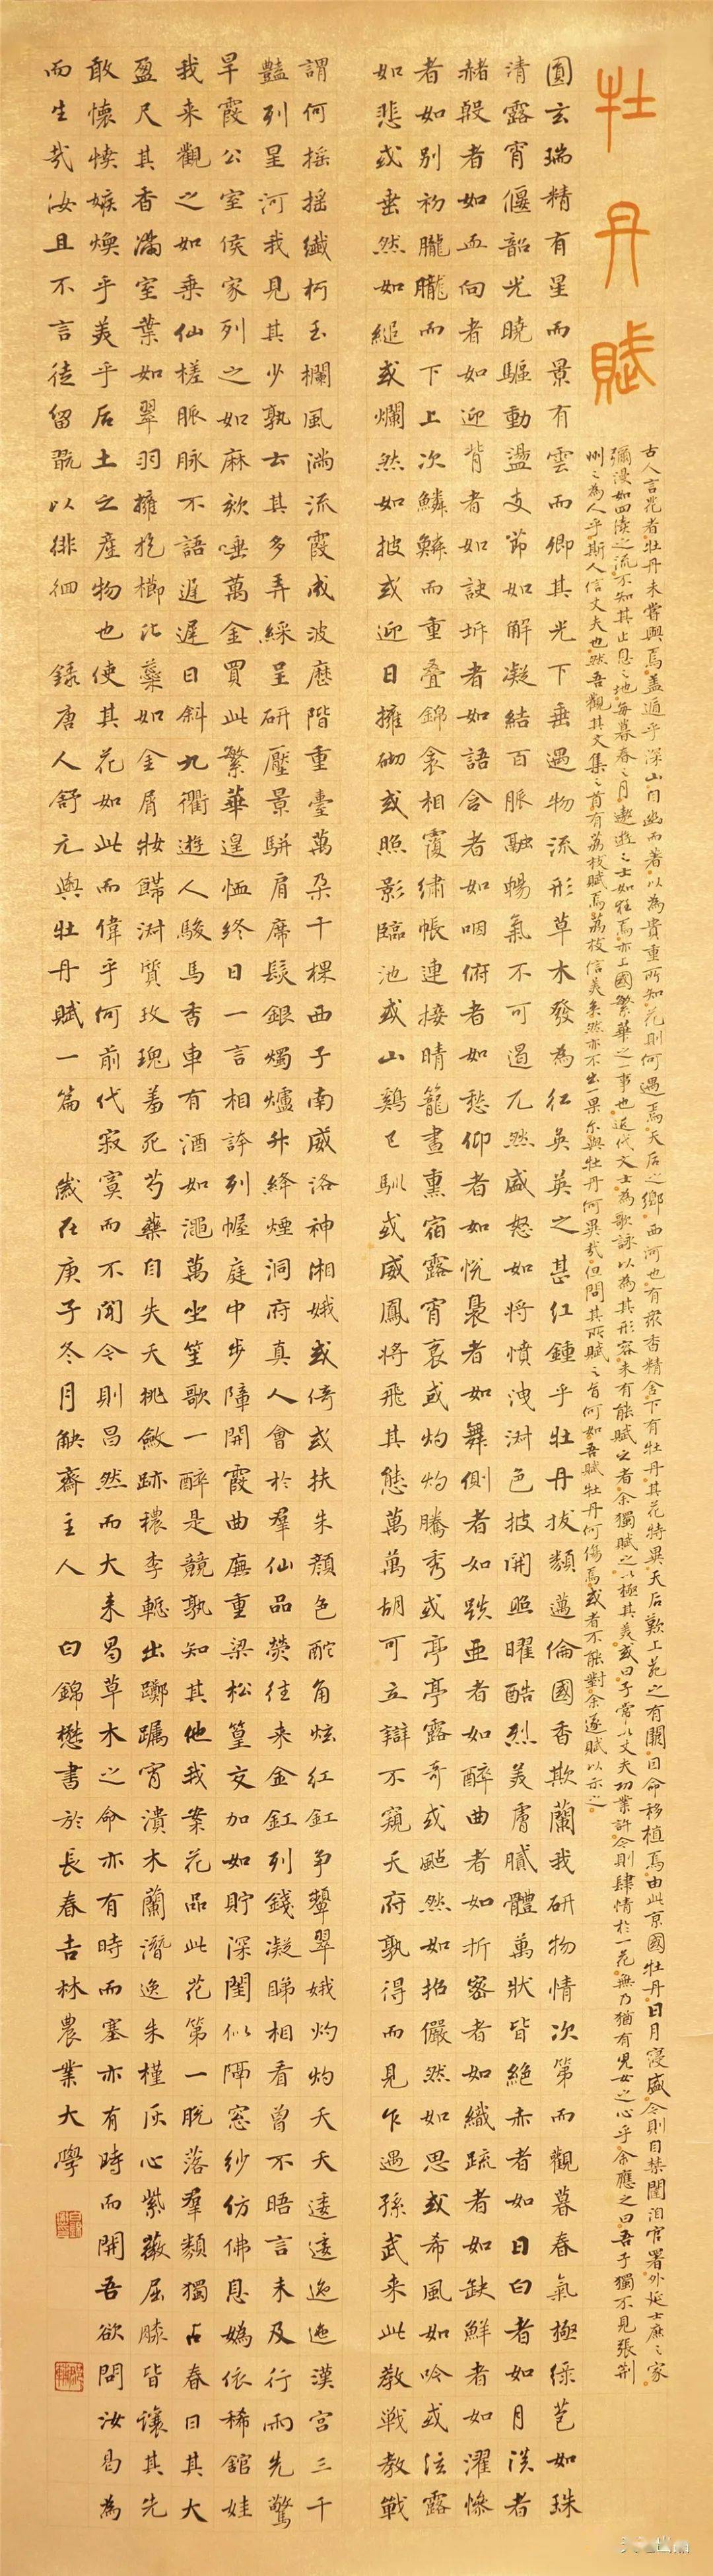 牡丹賦
古人言花者牡丹未嘗與焉蓋遁乎深山自幽而著以為貴重所知花則何遇焉天后之鄉西河也有眾香精舍下有牡丹其花特異天后歎上苑之有闕因命移植焉由此京國牡丹日月寖盛今則自禁闥洎官署外延士庶之家
彌漫如四瀆之流不知其止息之地每暮春之月遨遊之士如狂焉亦上國繁華之一事也近代文士為歌詠以為其形容未有能賦之者余獨賦之以極其美或曰子常以丈夫功業許今則肆情於一花無乃猶有兒女之心乎余應之曰吾子獨不見張荊
州之為人乎斯人信丈夫也然吾觀其文集之首有荔枝賦焉荔枝信美矣然亦不出一果尔與牡丹何異哉但問其所賦之旨何如吾賦牡丹何傷焉或者不能對余遂賦以示之
圓玄瑞精有星而景有雲而卿其光下垂遇物流形草木發為紅英英之甚紅鍾乎牡丹拔類邁倫國香欺蘭我研物情次第而觀暮春氣極綠苞如珠
清露宵偃韶光曉驅動盪支節如解凝結百脈融暢氣不可遏兀然盛怒如將憤洩淑色披開照曜酷烈美膚膩體萬狀皆絕赤者如日白者如月淡者
赭殷者如血向者如迎背者如訣坼者如語含者如咽俯者如愁仰者如悅裊者如舞側者如跌亞者如醉曲者如折密者如織疏者如缺鮮者如濯慘
者如別初朧朧而下上次鱗鱗而重疊錦衾相覆繡帳連接晴籠晝熏宿露宵裛或灼灼騰秀或亭亭露奇或颭然如招儼然如思或希風如吟或泫露
如悲或垂然如縋或爛然如披或迎日擁砌或照影臨池或山鷄已馴或威鳳將飛其態萬萬胡可立辯不窺天府孰得而見乍遇孫武来此教戰教戰
謂何搖搖纖柯玉欄風滿流霞成波歷階重臺萬朵千棵西子南威洛神湘娥或倚或扶朱顏色酡角炫紅釭争顰翠娥灼灼夭夭逶逶迤迤漢宮三千
豔列呈河我見其少孰云其多弄綵呈研壓景駢肩席髮銀燭爐升絳煙洞府真人會於羣仙晶熒往來金釭列錢凝睇相看曾不晤言未及行雨先驚
旱霞公室侯家列之如麻欬唾萬金買此繁華遑恤終日一言相誇列幄庭中步障開霞曲廡重梁松篁交加如貯深閨似隔窓紗仿佛息媯依稀館娃
我来觀之如乘仙槎脈脈不語遲遲日斜九衢遊人駿馬香車有酒如澠萬坐笙歌一醉是競孰知其他我案花品此花第一脫落羣類獨占春日其大
盈尺其香滿室葉如翠羽擁抱櫛比蘂如金屑妝飾淑質玫瑰羞死芍藥自失夭桃斂跡穠李慙出躑躅宵潰木蘭潛逸朱槿灰心紫薇屈膝皆讓其先
敢懷憤嫉煥乎美乎后土之產物也使其花如此而偉乎何前代寂寞而不聞今則昌然而大来曷草木之命亦有時而塞亦有時而開吾欲問汝曷為
而生哉汝且不言徒留翫以徘徊 錄唐人舒元輿牡丹賦一篇 歲在庚子冬月觖齋主人 白錦懋書於長春吉林農業大學